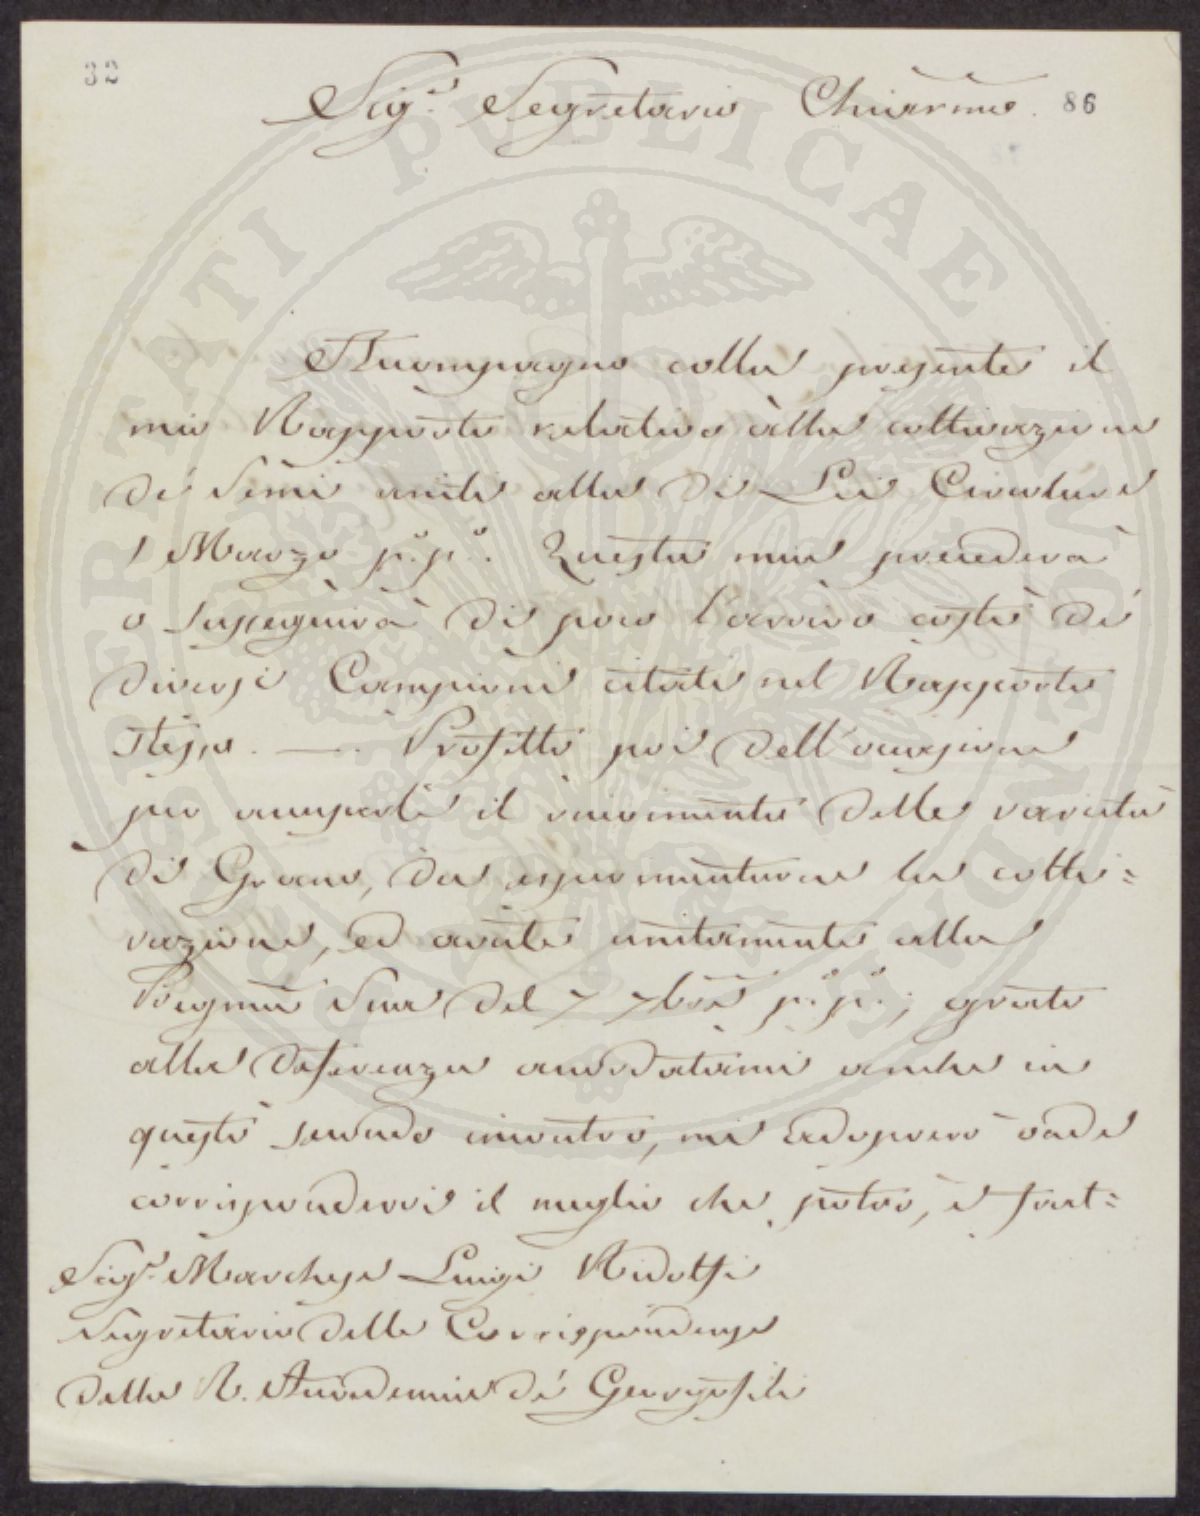 32
Sig.r Segretario Chiarmo. 86
Accompagno colla presente il
mio Rapporto relativo alla coltivazione
de' Semi uniti alla di Lei Circolare
1 Marzo p.o p.o. Questa mia precederà
o susseguirà di poco l'arrivo costì de'
diversi Campioni citati nel Rapporto
stesso. — Profitto poi dell'occasione
per accusarle il ricevimento delle varietà
di Grano, da esperimentarne la colti=
vazione, ed avute unitamente alla
Pregma Sua del 7 7bre p.o p.o; grato
alla deferenza accordatami anche in
questo secondo incontro, mi adoprerò onde
corrispondervi il meglio che potrò, e frat=
Sigr. Marchese Luigi Ridolfi
Segretario delle Corrispondenze
della R. Accademia de' Georgofili
SPERITATI PUBLICAE